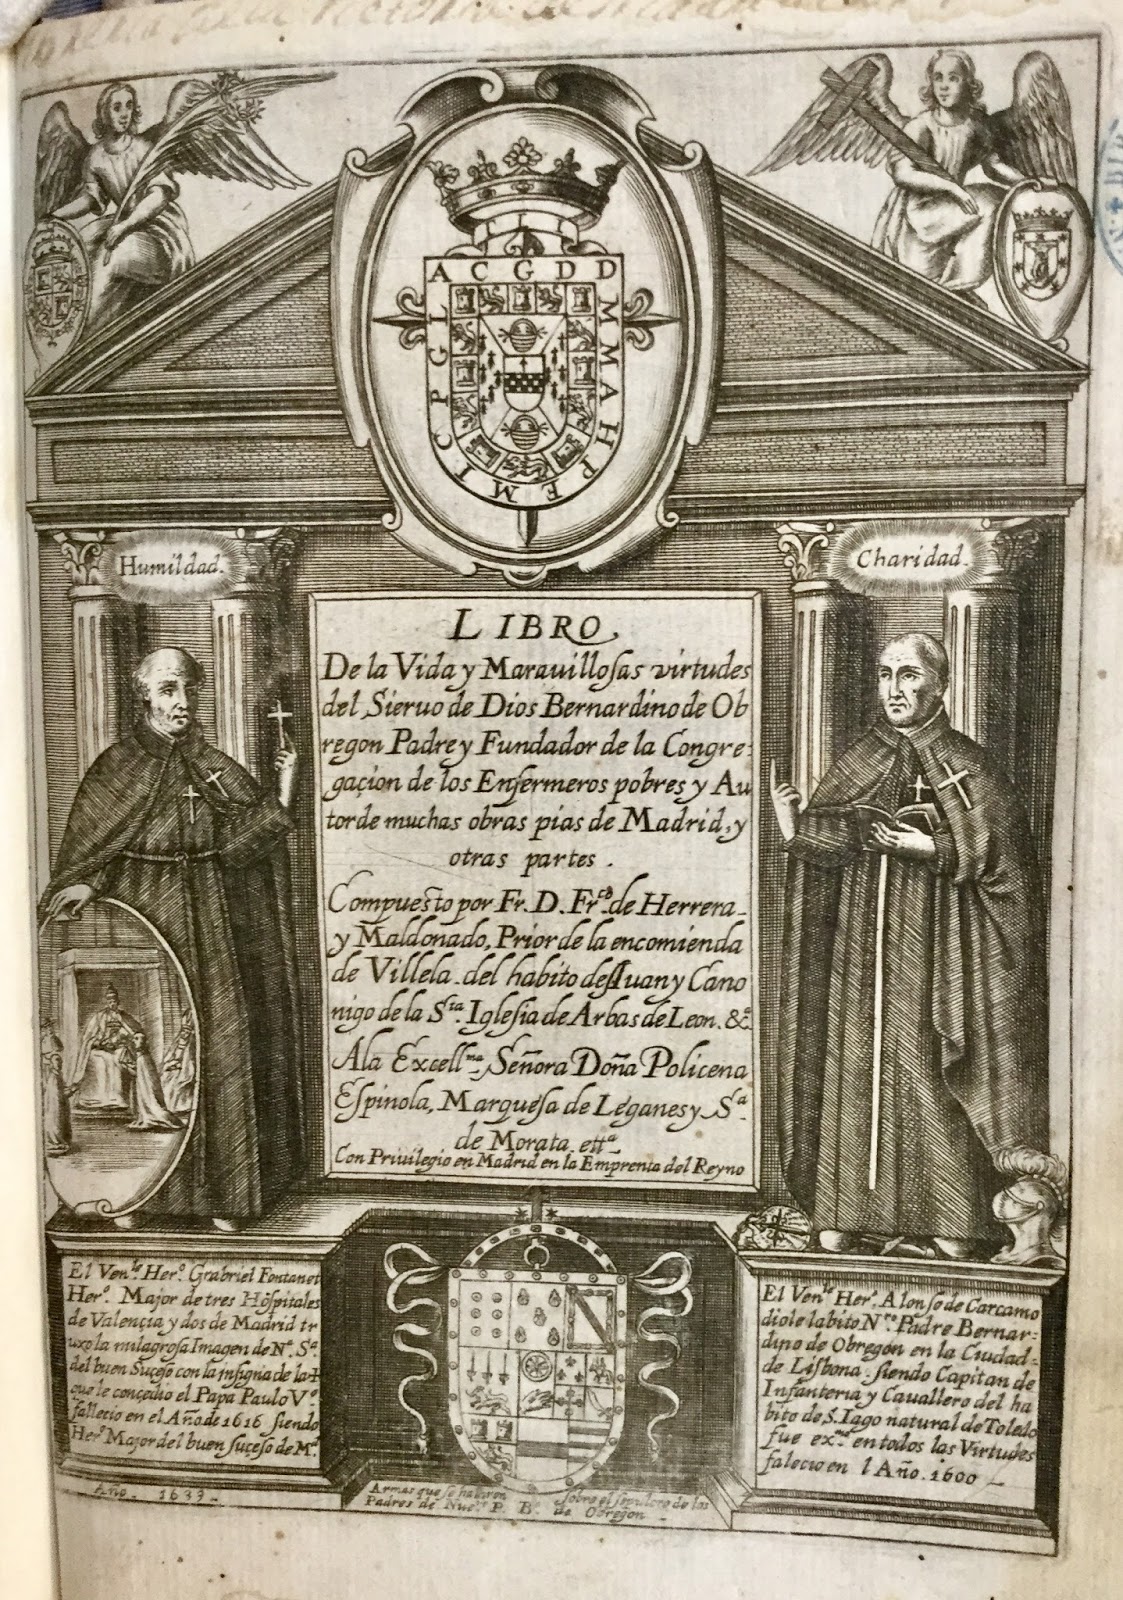 A C G D D
M M A H P E M T C P G L
Humildad.
Charidad.
LIBRO,
De la Vida y Marauillosas virtudes
del Sieruo de Dios Bernardino de Ob
regon Padre y Fundador de la Congre-
gaçion de los Enfermeros pobres y Au
tor de muchas obras pias de Madrid, y
otras partes.
Compuesto por Fr. D. Fr.co de Herrera
y Maldonado, Prior de la encomienda
de Villela del habito de S Iuan y Cano
nigo de la S.ta Iglesia de Arbas de Leon. &a.
A la Excell.ma Señora Doña Policena
Espinola, Marquesa de Leganes y S.a
de Morata ett.a
Con Priuilegio en Madrid en la Emprenta del Reyno
El Ven.le Her.o Grabriel Fontanet
Her.o Major de tres Hospitales
de Valençia y dos de Madrid tr
uxo la milagrosa Imagen de N.a S.a
del buen Suçeso con la insignia de la +
que le conçedio el Papa Paulo V.o
falleçio en el Año de 1616 siendo
Her.o Major del buen suçeso de M.d
Año. 1633
El Ven.le Her.o Alonso de Carcamo
diole labito N.ro Padre Bernar-
dino de Obregon en la Ciudad
de Lisbona siendo Capitan de
Infanteria y Cauallero del ha
bito de S. Iago natural de Toledo
fue ex.mo en todos las Virtudes
falecio en l Año. 1600
Armas que se hallaron sobre el sepulcro de los
Padres de Nue.o P. B.o de Obregon